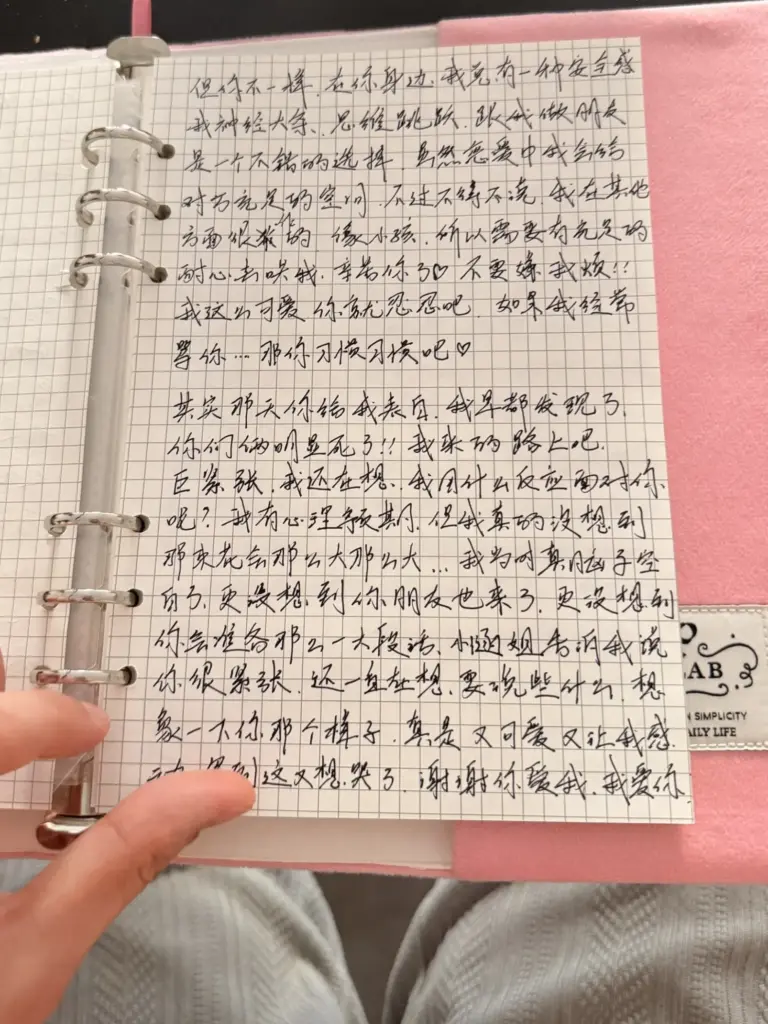 但你不一样，在你身边，我竟有一种安全感
我神经大条、思维跳跃，跟我做朋友
是一个不错的选择，虽然恋爱中我会给
对方充足的空间，不过不得不说，我在其他
方面很作的 像小孩，所以需要有充足的
耐心去哄我，辛苦你了♡ 不要嫌我烦!!
我这么可爱 你就忍忍吧，如果我经常
骂你…那你习惯习惯吧♡
其实那天你给我表白，我早都发现了，
你们俩明显死了!! 我来的路上吧，
巨紧张，我还在想，我用什么反应面对你
呢? 我有心理预期，但我真的没想到
那束花会那么大那么大…我当时真脑子空
白了，更没想到你朋友也来了，更没想到
你会准备那么一大段话，小涵姐告诉我说
你很紧张，还一直在想，要说些什么，想
象一下你那个样子，真是又可爱又让我感
这又想哭了，谢谢你爱我，我爱你，
LAB
SIMPLICITY
DAILY LIFE